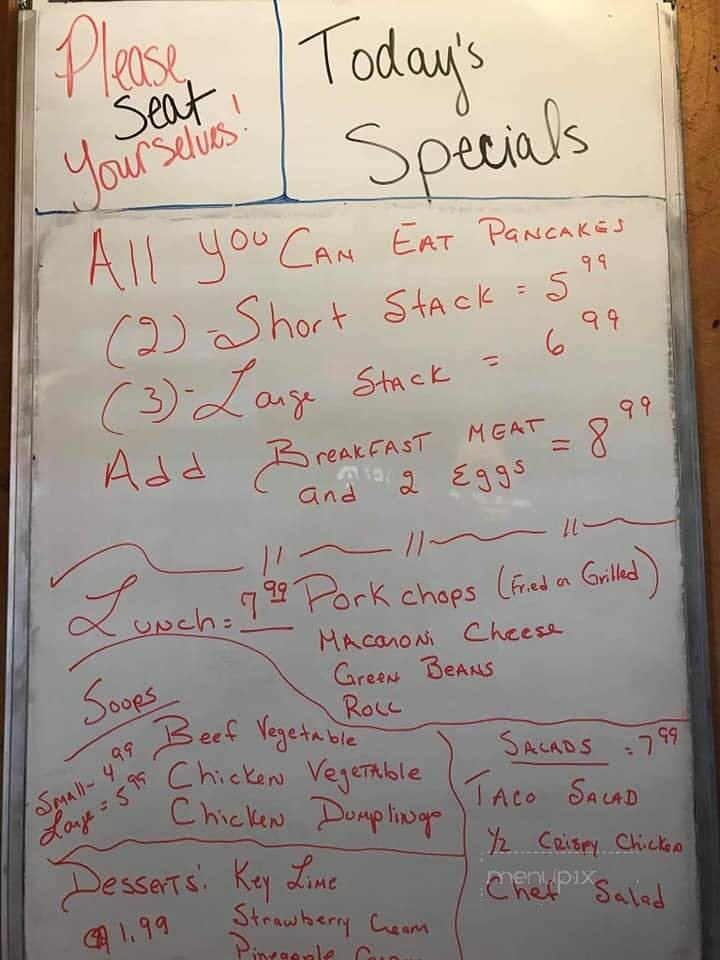 Please
Seat
Yourselves!
Today's
Specials
All You Can Eat Pancakes
(2)-Short Stack = 5 99
(3)-Large Stack = 6 99
Add Breakfast Meat
and 2 Eggs = 8 99
Lunch = 7 99 Pork chops (Fried or Grilled)
Macaroni Cheese
Green Beans
Roll
Soups
Small - 4 99
Large = 5 99
Beef Vegetable
Chicken Vegetable
Chicken Dumplings
Salads = 7 99
Taco Salad
1/2 Crispy Chicken
Chef Salad
menupix
Desserts: Key Lime
$1.99 Strawberry Cream
Pineapple